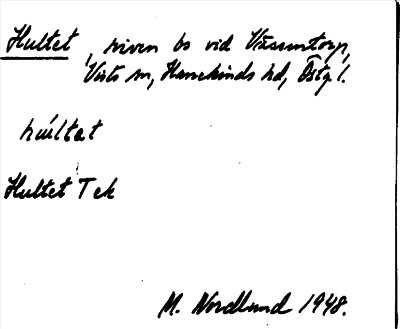 Hultet, riven bs vid Vässentorp,
Vists sn, Hanekinds hd, Östgl.
húltet
Hultet Tek
M. Nordlund 1948.